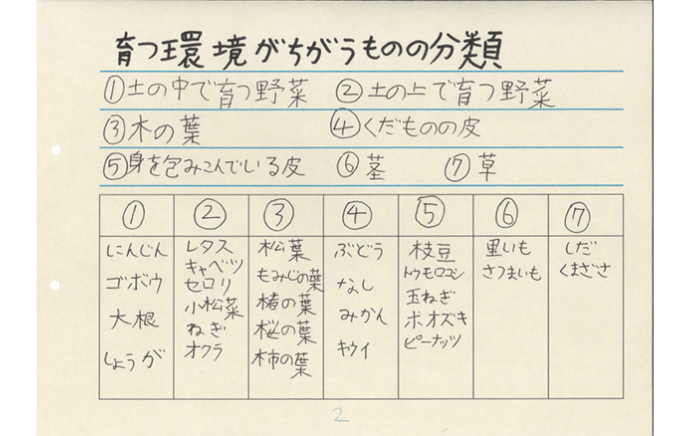 育つ環境がちがうものの分類
①土の中で育つ野菜 ②土の上で育つ野菜
③木の葉 ④くだものの皮
⑤身を包みこんでいる皮 ⑥茎 ⑦草
① ② ③ ④ ⑤ ⑥ ⑦
にんじん
ゴボウ
大根
しょうが
レタス
キャベツ
セロリ
小松菜
ねぎ
オクラ
松葉
もみじの葉
椿の葉
桜の葉
柿の葉
ぶどう
なし
みかん
キウイ
枝豆
トウモロコシ
玉ねぎ
ホオズキ
ピーナッツ
里いも
さつまいも
しだ
くまざさ
2